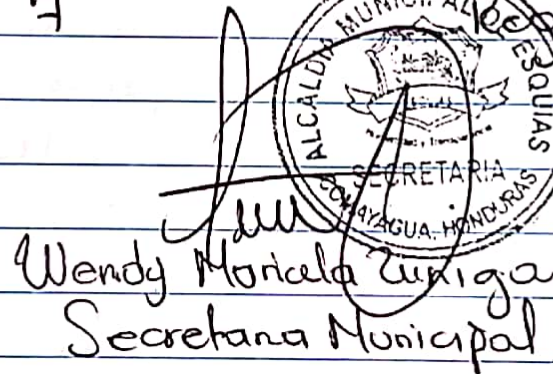 ALCALDIA MUNICIPAL
ESQUIAS
SECRETARIA
COMAYAGUA, HONDURAS
Wendy Maricela Zuniga
Secretaria Municipal